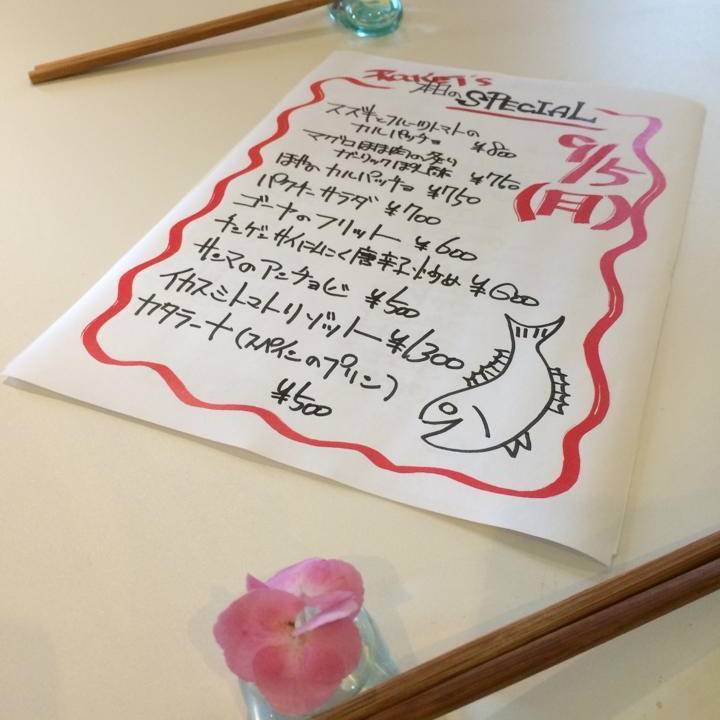 Rocket's
本日のSPECIAL
9/5
(月)
スズキとフルーツトマトの
カルパッチョ ¥800
マグロほほ肉の炙り
ガーリックぽん酢 ¥750
ほやのカルパッチョ ¥750
パクチーサラダ ¥700
ゴーヤのフリット ¥600
チンゲンサイにんにく唐辛子炒め ¥600
サンマのアンチョビ ¥500
イカスミトマトリゾット ¥1300
カタラーナ(スペインのプリン)
¥500